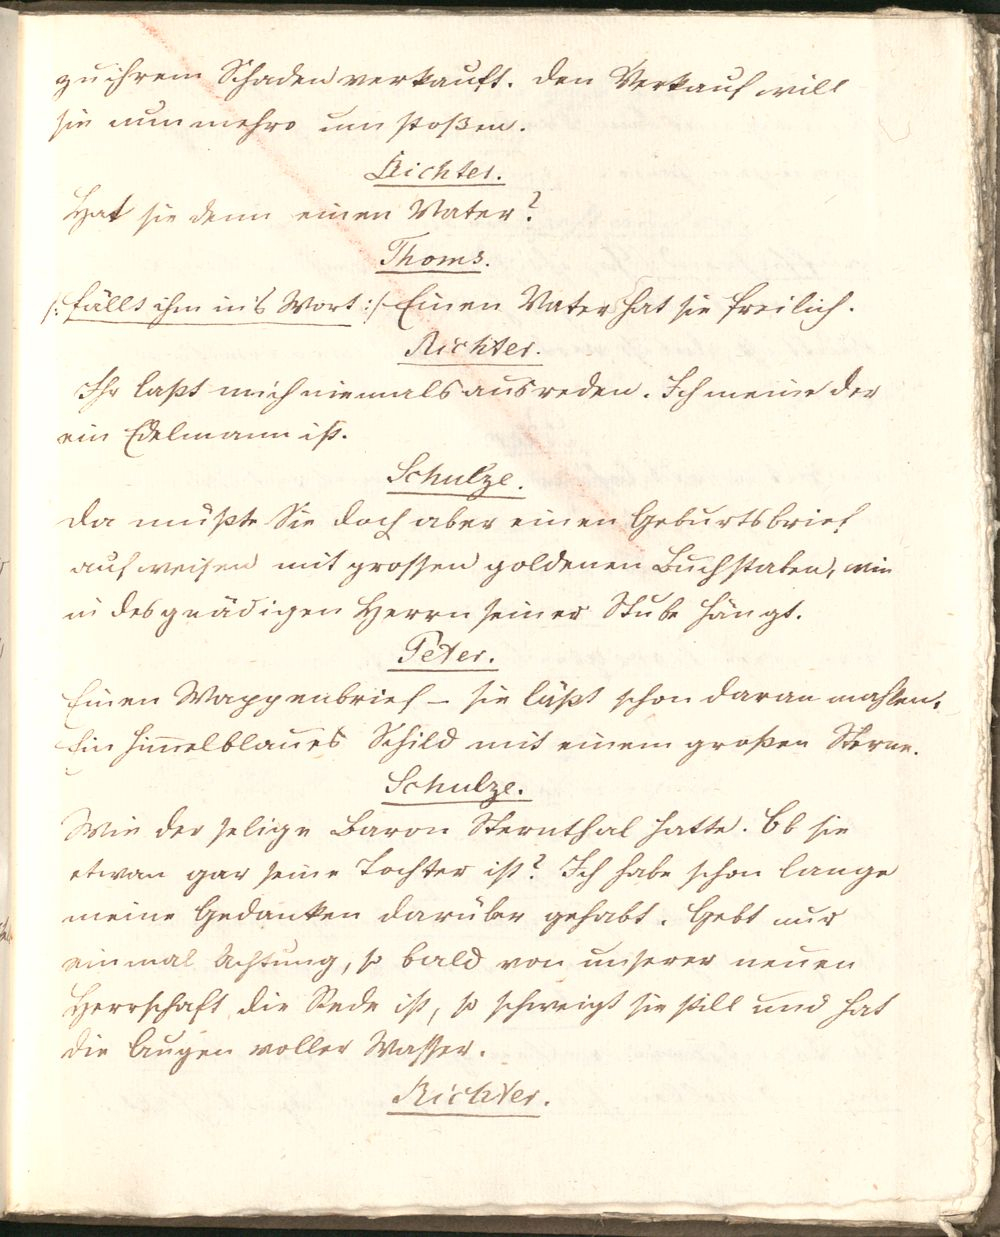 zu ihrem Schaden verkauft. Den Verkauf will
sie nunmehro umstoßen.
Richter.
Hat sie denn einen Vater?
Thoms.
/: fällt ihm in's Wort :/ Einen Vater hat sie freilich.
Richter.
Ihr laßt mich niemals ausreden. Ich meine der
ein Edelmann ist.
Schulze.
Da müßte Sie doch aber einen Geburtsbrief
aufweisen mit grossen goldenen Buchstaben, wie
in des gnädigen Herrn seiner Stube hängt.
Peter.
Einen Wappenbrief – sie läßt schon daran mahlen.
Ein himelblaues Schild mit einem großen Sterne.
Schulze.
Wie der selige Baron Sternthal hatte. Ob sie
etwan gar seine Tochter ist? Ich habe schon lange
meine Gedanken darüber gehabt. Gebt nur
einmal Achtung, so bald von unserer neuen
Herrschaft die Rede ist, so schweigt sie still und hat
die Augen voller Wasser.
Richter.